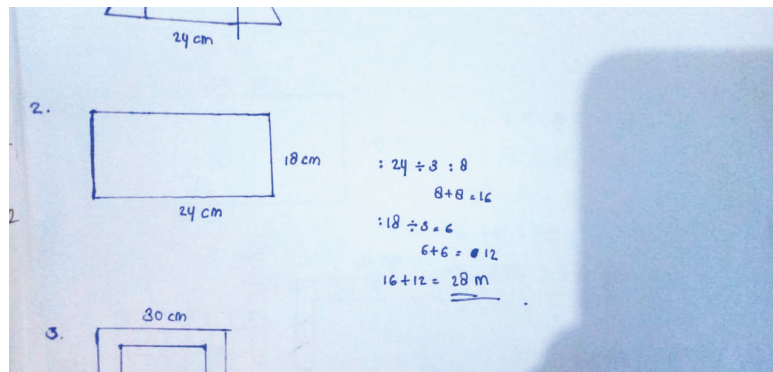 24 cm
2.
18 cm
24 cm
: 24 ÷ 3 : 8
8+8=16
:18 ÷ 3 = 6
6+6 = 12
16+12 = 28 m
2
30 cm
3.